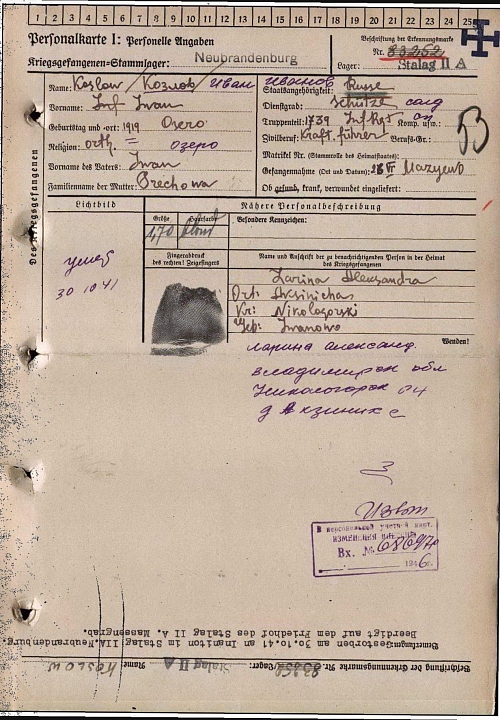 1 2 3 4 5 6 7 8 9 10 11 12 13 14 15 16 17 18 19 20 21 22 23 24 25
Personalkarte I: Personelle Angaben
Kriegsgefangenen-Stammlager: Neubrandenburg
Beschriftung der Erkennungsmarke
Nr. 83252
Lager: Stalag II A
Name: Koslow / Козлов Иван Иванов
Vorname: Iwan
Geburtstag und -ort: 1919 Osero
Religion: orth. = озеро
Vorname des Vaters: Iwan
Familienname der Mutter: Orechowa
Staatsangehörigkeit: Russe
Dienstgrad: Schütze солд
Truppenteil: 1739 Inf. Rgt Komp. usw.:
Zivilberuf: Kraft.führer Berufs-Gr.:
Matrikel Nr. (Stammrolle des Heimatstaates):
Gefangennahme (Ort und Datum):
Ob gesund, krank, verwundet eingeliefert:
53
Des Kriegsgefangenen
Lichtbild
Nähere Personalbeschreibung
Größe
Haarfarbe
Besondere Kennzeichen:
1,70
blond
Fingerabdruck
des rechten! Zeigefingers
Name und Anschrift der zu benachrichtigenden Person in der Heimat
des Kriegsgefangenen
умер
30 10 41
Larina Aleksandra
Ort: Aksinicha
Kr: Nikologorski
Geb: Iwanowo
Wenden!
Ларина Александ.
Владимирск обл
Никологорск
д Аксиних
Извещ
В персональный учетный карт.
ИЗМЕНЕНИЯ ВНЕСЕНЫ
Вх. №
1946 г.
Bemerkungen: Gestorben am 30.10.41 im Lager II A Neubrandenburg.
Beerdigt auf dem Friedhof des Stalag II A. Massengrab.
Beschriftung der Erkennungsmarke Nr. 83252 Lager: Stalag II A Name: KOSLOW